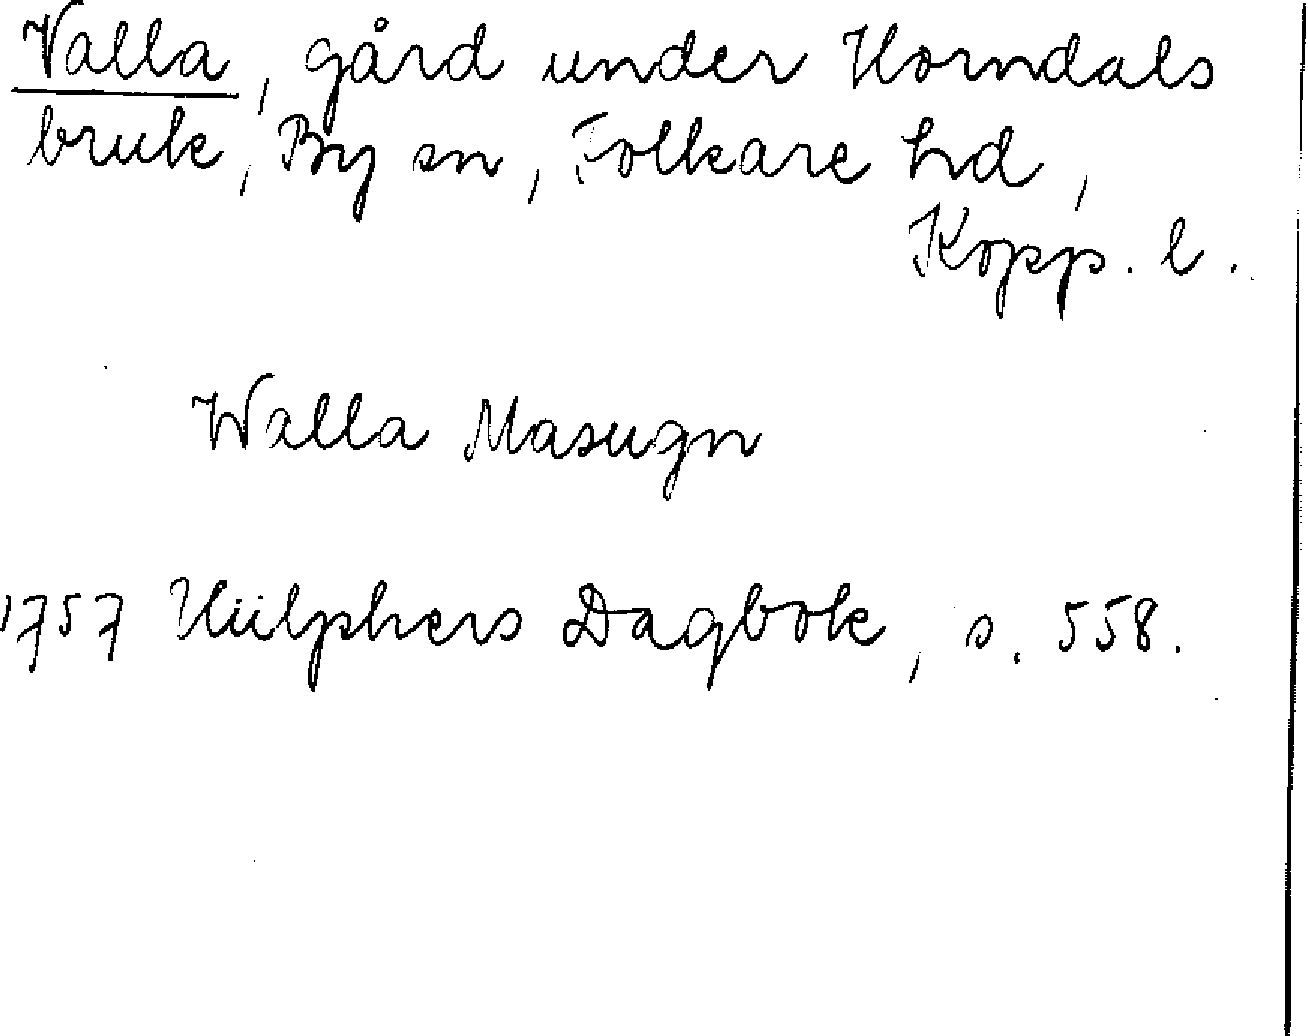 Valla, gård under Horndals
bruk, By sn, Folkare hd,
Kopp. l.
Walla Masugn
1757 Hülphers Dagbok, s. 558.